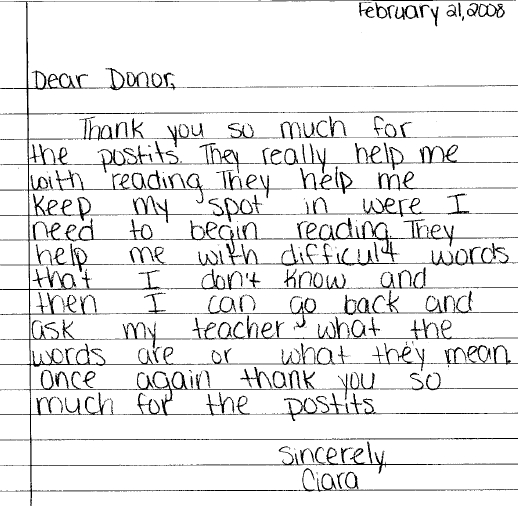 February 21, 2008
Dear Donor,
Thank you so much for
the postits. They really help me
with reading They help me
keep my spot in were I
need to begin reading They
help me with difficult words
that I don't know and
then I can go back and
ask my teacher what the
words are or what they mean.
once again thank you so
much for the postits
Sincerely,
Ciara